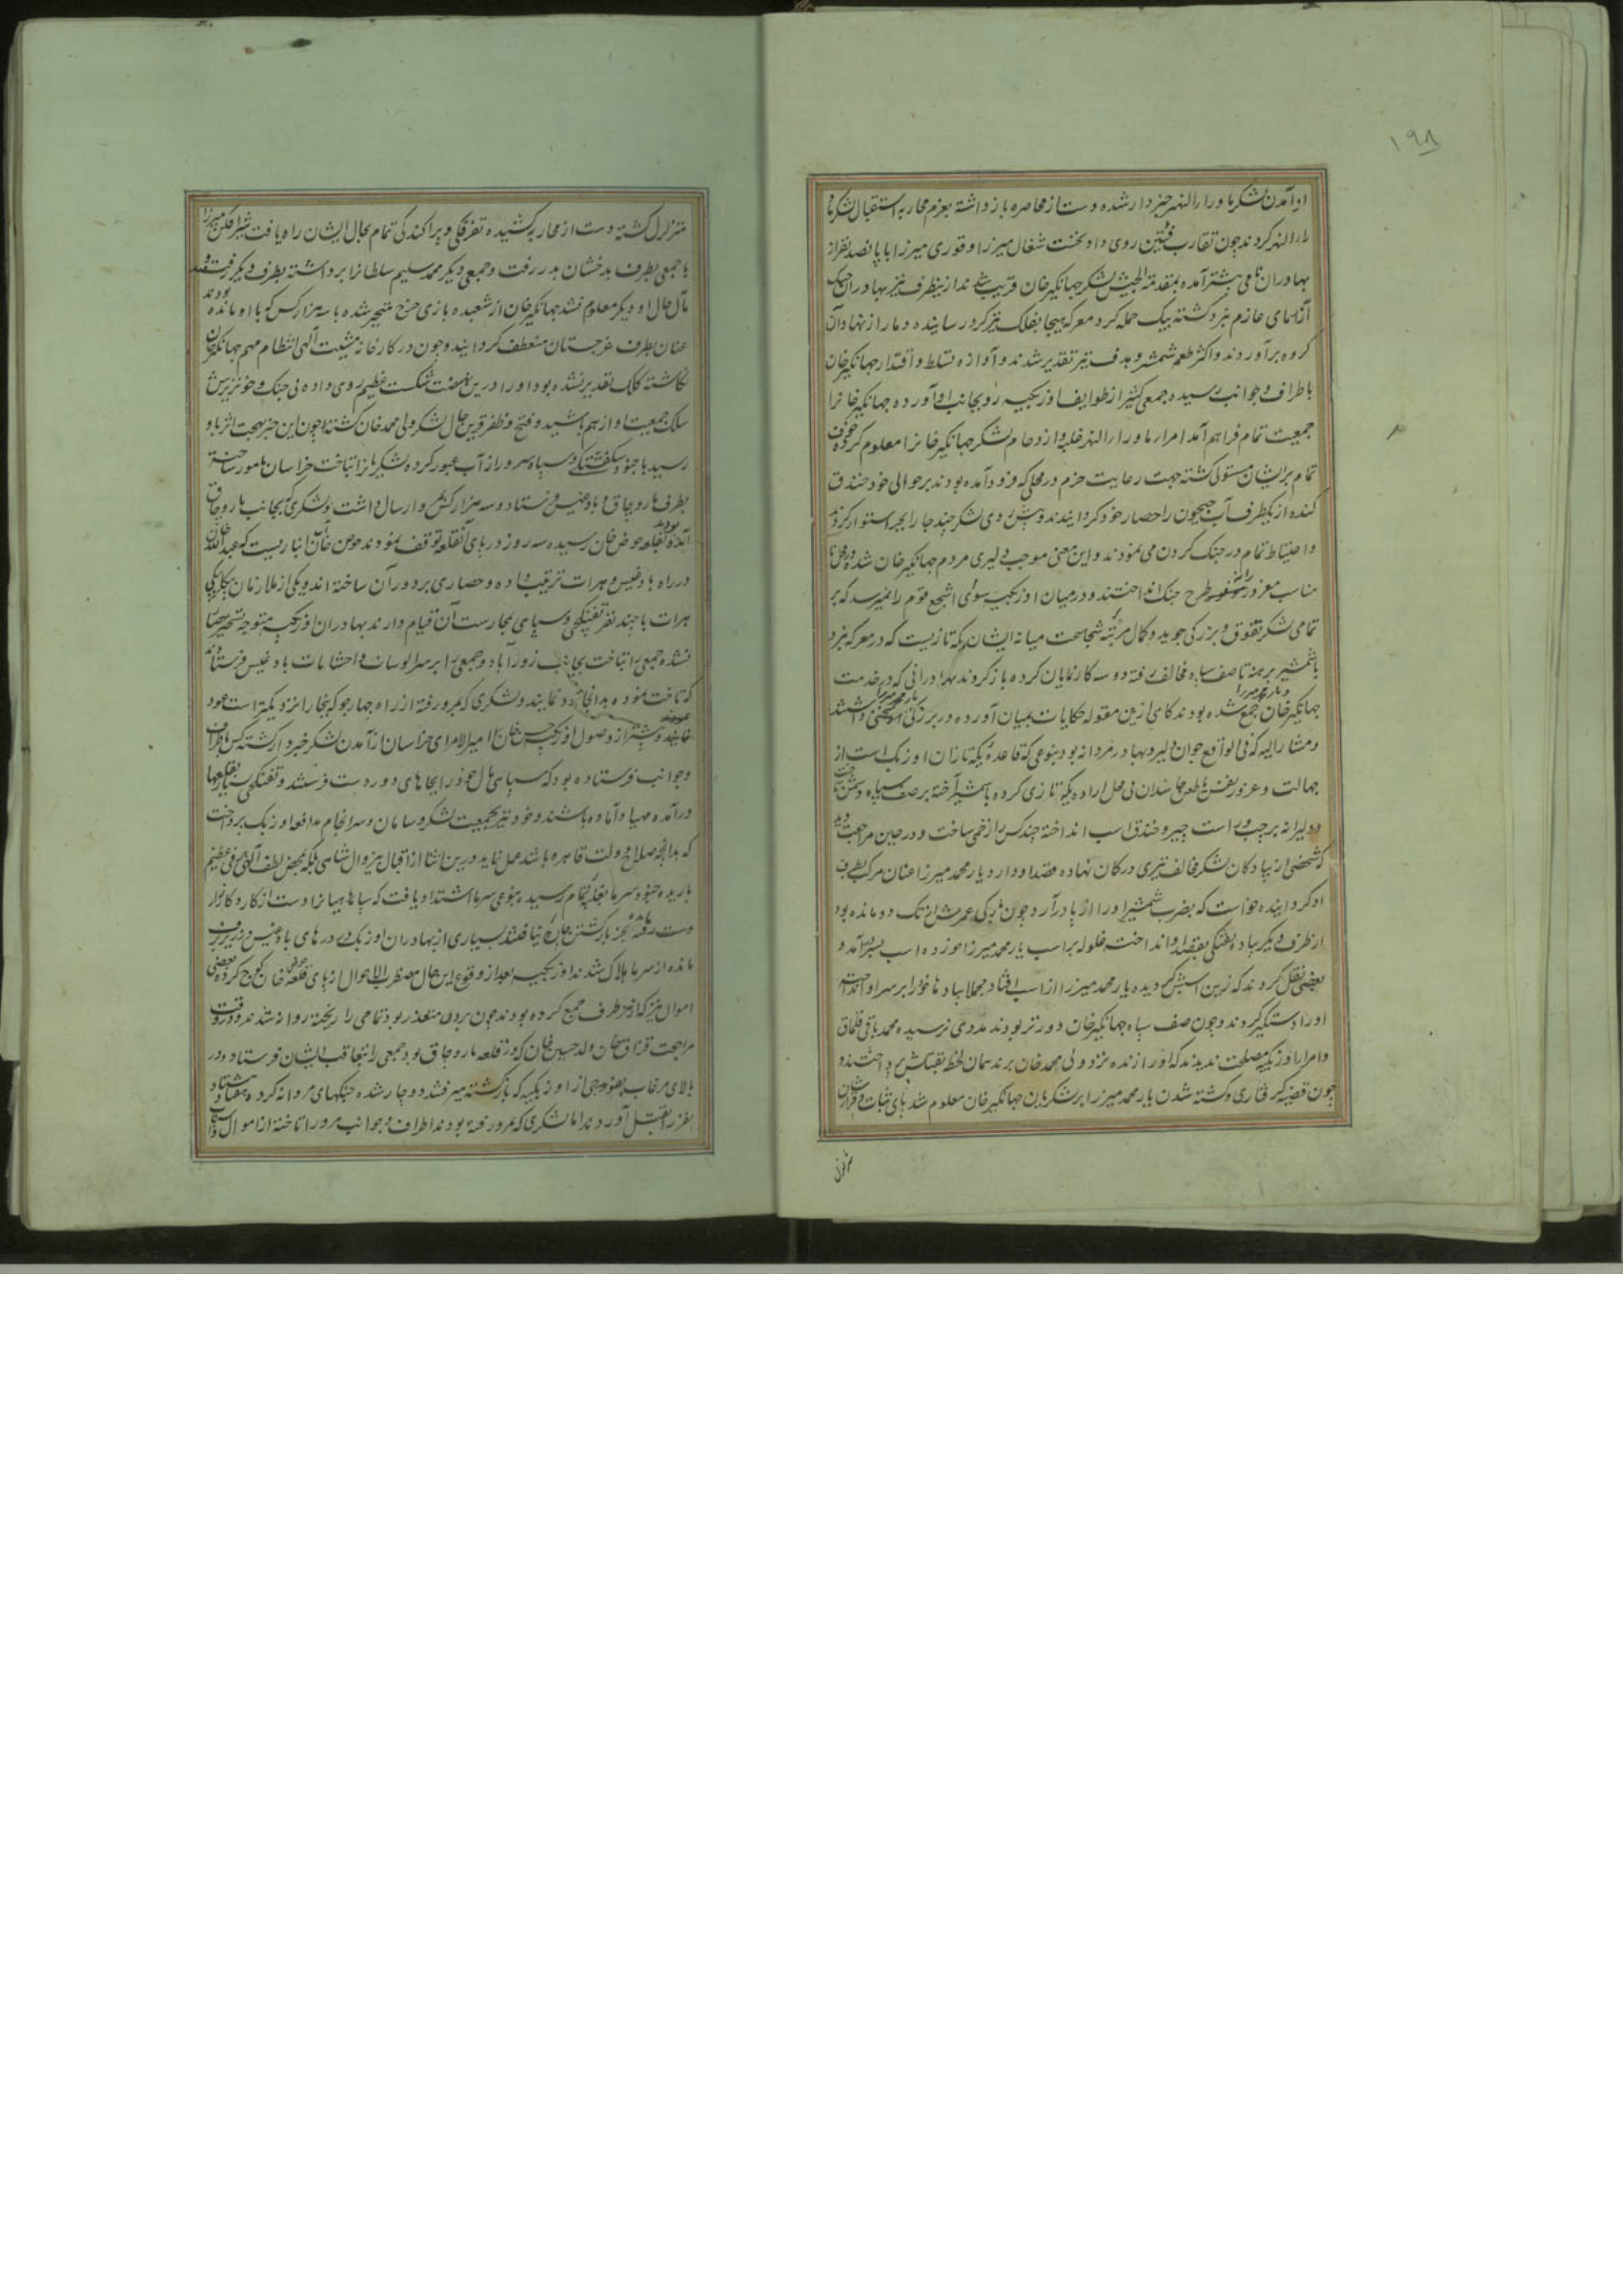 ۱۹۸
او آمدن لشکر ماوراء النهر خبردار شده دست از محاصره باز داشته بعزم محاربه استقبال لشکر ماو
راء النهر کردند چون تقارب فئتین روی داد نخست شغال میرزا و قوری میرزا با پانصد نفر از
بهادران نامی پیشتر آمده بمقدمة الجیش لشکر جهانگیر خان قریب شدند ازینطرف نیز بهادران جنک
آزمای عازم نبرد گشته بیک حمله گرد معرکه هیجا بفلک تیزگرد رسانیده دمار از نهاد آن
گروه برآوردند و اکثر طعمه شمشیر و هدف تیر تقدیر شدند و آوازه تسلط و اقتدار جهانگیر خان
باطراف و جوانب رسیده جمعی کثیر از طوایف اوزبکیه رو بجانب او آورده جهانگیر خانرا
جمعیت تمام فراهم آمد امراء ماوراء النهر غلبه و ازدحام لشکر جهانگیر خانرا معلوم کرده خوف
تمام بر ایشان مستولی گشته جهت رعایت حزم در محلی که فرود آمده بودند بر حوالی خود خندق
کنده از یکطرف آب جیحون را حصار خود گردانیدند و پیش روی لشکر چند جا را بجر استوار کردند
و احتیاط تمام در جنک کردن می نمودند و این معنی موجب دلیری مردم جهانگیر خان شده در محل نا
مناسب مغرور طرح جنک انداختند و در میان اوزبکیه سوای اشجع قوم را نمیرسد که بر
تمامی لشکر تفوق و بزرگی جوید و کمال مرتبه شجاعت میانه ایشان یکه تازیست که در معرکه نبرد
با شمشیر برهنه تا صف سپاه مخالف رفته دو سه کار نمایان کرده باز گردند بهادرانی که در خدمت
جهانگیر خان جمع شده بودند گاهی ازین مقوله حکایات بمیان آورده در بزرگی یار محمد میرزا سخنی داشتند
و مشار الیه که فی الواقع جوان دلیر و بهادر مردانه بود بنوعی که قاعده یکه تازان اوزبک است از
جهالت و غرور بی محل اراده یکه تازی کرده با شمشیر آخته بر صف سپاه دشمن تاخت
و دلیرانه بر چپ و راست جر و خندق اسب انداخته چند کس را زخمی ساخت و در حین مراجعت دید
که شخصی از پیادگان لشکر مخالف تیری در کمان نهاده قصد او دارد یار محمد میرزا عنان مرکب بطرف
او گردانیده خواست که بضرب شمشیر او را از پا درآرد چون باریکی عمرش از تک دو مانده بود
از طرف دیگر پیاده تفنکی بقصد او انداخت غلوله بر اسب یار محمد میرزا خورده اسب بسر درآمد و
بعضی نقل کردند که زین اسبش گردیده یار محمد میرزا از اسب افتاد مجملا پیاده ها خود را بر سر او انداخته
او را دستگیر کردند و چون صف سپاه جهانگیر خان دورتر بودند مددی نرسیده محمد باقی قلماق
و امراء اوزبکیه مصلحت ندیدند که او را زنده نزد ولی محمد خان برند همان لحظه بقتلش پرداختند و
چون قضیه گرفتاری و کشته شدن یار محمد میرزا بر لشکریان جهانگیر خان معلوم شد پای ثبات و قرارشان
متزلزل
متزلزل گشته دست از محاربه کشیده تفرقگی و پراکندگی تمام بحال ایشان راه یافت شیر افکن میرزا
با جمعی بطرف بدخشان بدر رفت و جمعی دیگر محمد سلیم سلطانرا برداشته بطرف دیگر رفتند و
مآل حال او دیگر معلوم نشد جهانگیر خان از شعبده بازی چرخ متحیر شده با سه هزار کس که با او مانده بودند
عنان بطرف غرجستان منعطف گردانید و چون در کارخانه مشیت الهی انتظام مهم جهانگیر خان
نگاشته کلک تقدیر نشده بود او را درین نهضت شکست عظیم روی داده بی جنک و خونریزش
سلک جمعیت او از هم پاشید و فتح و ظفر قرین حال لشکر ولی محمد خان گشته چون این خبر بهجت اثر باو
رسید با جنود و سپاه سرور از آب عبور کرده لشکریانرا بتاخت خراسان مامور ساخته
بطرف ماروچاق و بادغیس فرستاد و سه هزار کس بمرو ارسال داشت و لشکری که بجانب ماروچاق
آمده بودند بقلعه حوض خان رسیده سه روز در پای آن قلعه توقف نمودند حوض خان آب انباریست که عبد الله خان
در راه بادغیس و هرات ترتیب داده و حصاری بر دور آن ساخته اند و یکی از ملازمان بیکلربیکی
هرات با چند نفر تفنکچی و سپاهی بحارست آن قیام دارند بهادران اوزبکیه متوجه تسخیر حصار
نشده جمعی را بتاخت بجانب زورآباد و جمعی را بر سر الوسات و احشامات بادغیس فرستادند
که تاخت نموده بدانجا عود نمایند و لشکری که بمرو رفته از راه چهارجو که ببخارا نزدیکتر است عود
نمایند و پیشتر از وصول اوزبکیه حسین خان امیر الامرای خراسان از آمدن لشکر خبردار گشته کس باطراف
و جوانب فرستاده بود که سپاهی مال خود را بجاهای دور دست فرستند و تفنکچی بسیار بقلعها
درآمده مهیا و آماده باشند و خود نیز بجمعیت لشکر و سامان و سرانجام مدافعه اوزبک پرداخت
که بدانچه صلاح دولت قاهره باشد عمل نماید درین اثنا از اقبال بیزوال شاهی بلکه بمحض لطف الهی برفی عظیم
باریده جنود سرما بغلبه تمام رسیده بنوعی سرما اشتداد یافت که سپاهیانرا دست از کار و کارزار
دست رفته بجز بازگشتن چاره نیافتند بسیاری از بهادران اوزبک در درهای بادغیس در زیر برف
مانده از سرما هلاک شدند اوزبکیه بعد از وقوع این حال مضطرب الاحوال از پای قلعه حوض خان کوچ کرده بعضی
اموال نیز که از هر طرف جمع کرده بودند چون بردن متعذر بود تمامی را ریخته روانه شدند و در وقت
مراجعت قزاق خان ولد حسین خان که در قلعه ماروچاق بود جمعی را بتعاقب ایشان فرستاد و در
بالای مرغاب بفوجی از اوزبکیه که بازگشته میرفتند دوچار شده جنگهای مردانه کرده هفتاد هشتاد
نفر را بقتل آوردند اما لشکری که بمرو رفته بودند اطراف و جوانب مرو را تاخته از اموال و